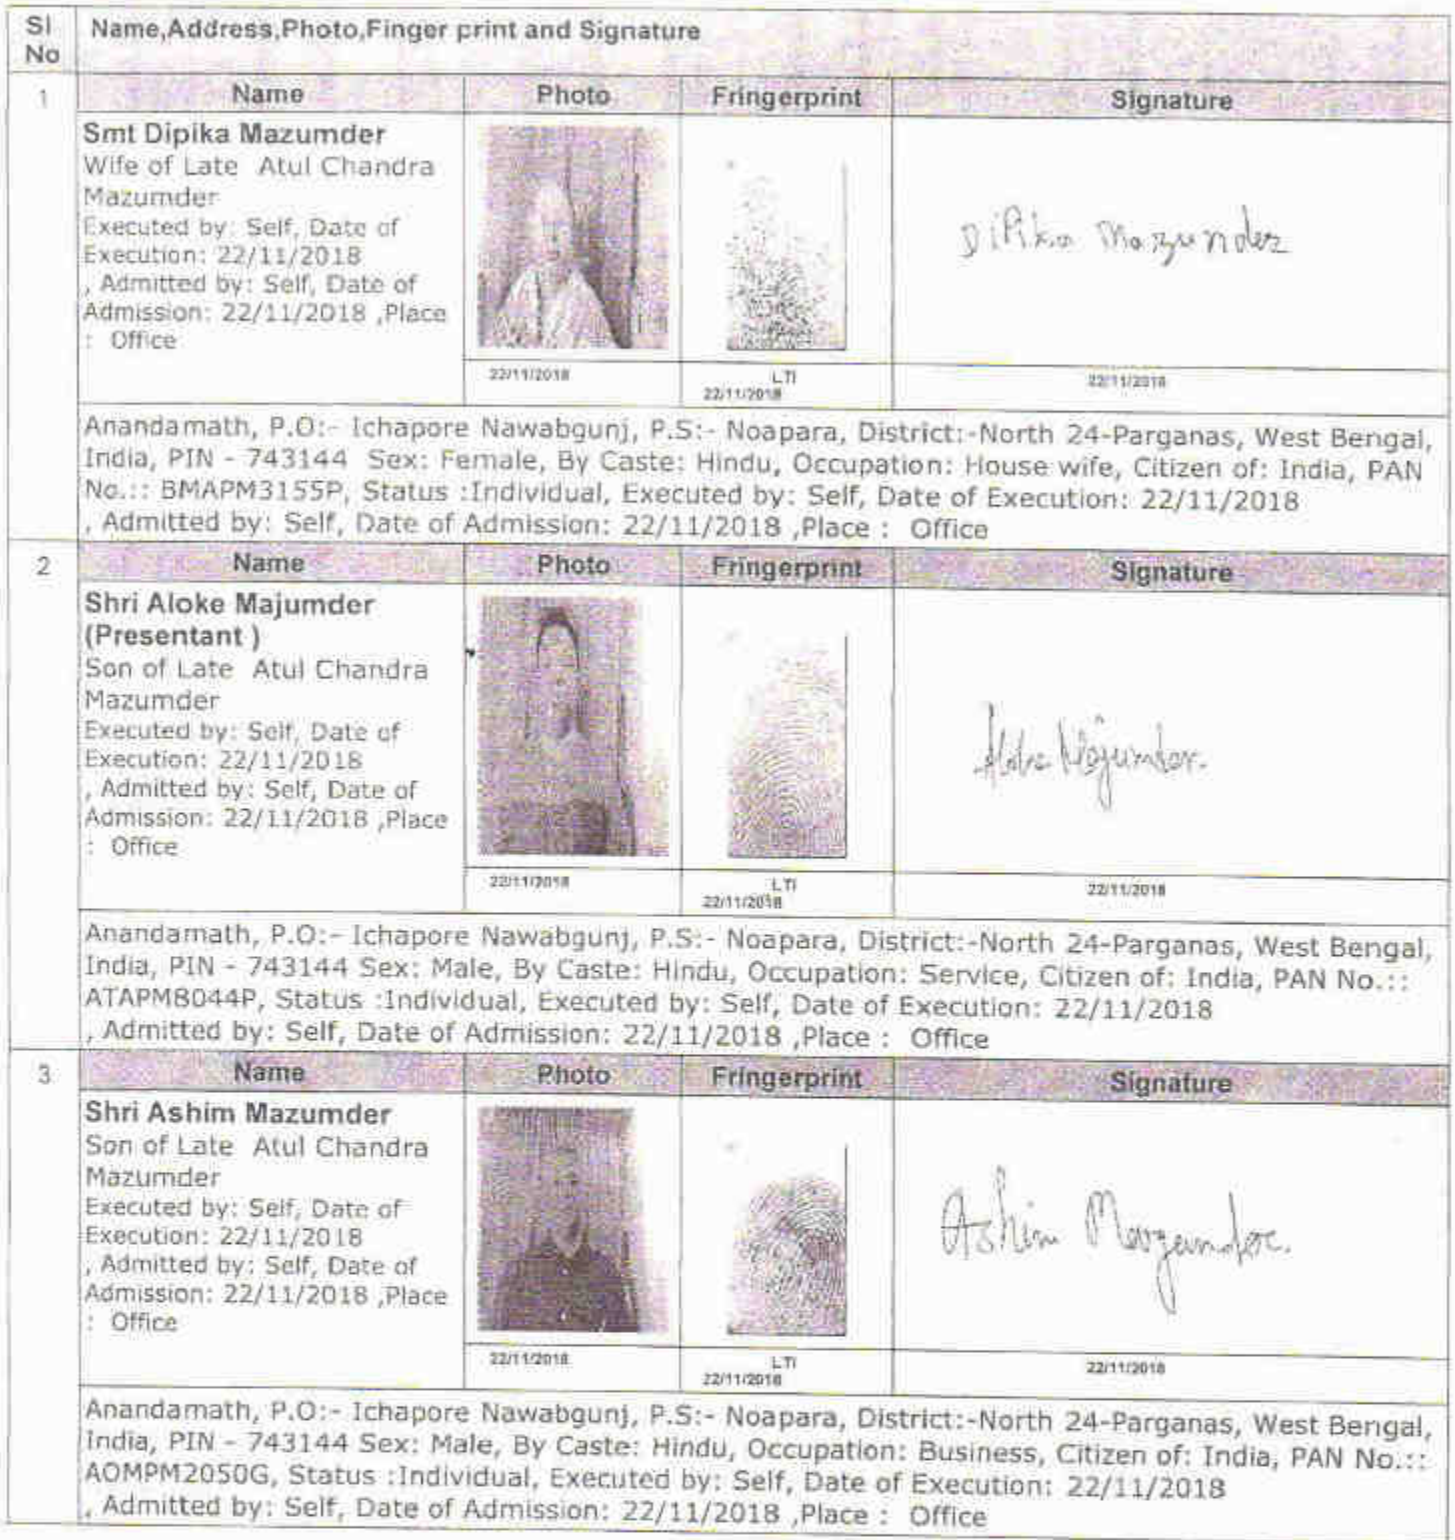 Sl No Name,Address,Photo,Finger print and Signature
1 Name Photo Fringerprint Signature
Smt Dipika Mazumder
Wife of Late Atul Chandra
Mazumder
Executed by: Self, Date of
Execution: 22/11/2018
, Admitted by: Self, Date of
Admission: 22/11/2018 ,Place
: Office
Dipika Mazumder
22/11/2018
LTI
22/11/2018
22/11/2018
Anandamath, P.O:- Ichapore Nawabgunj, P.S:- Noapara, District:-North 24-Parganas, West Bengal,
India, PIN - 743144 Sex: Female, By Caste: Hindu, Occupation: House wife, Citizen of: India, PAN
No.:: BMAPM3155P, Status :Individual, Executed by: Self, Date of Execution: 22/11/2018
, Admitted by: Self, Date of Admission: 22/11/2018 ,Place : Office
2 Name Photo Fringerprint Signature
Shri Aloke Majumder
(Presentant )
Son of Late Atul Chandra
Mazumder
Executed by: Self, Date of
Execution: 22/11/2018
, Admitted by: Self, Date of
Admission: 22/11/2018 ,Place
: Office
Aloke Majumder.
22/11/2018
LTI
22/11/2018
22/11/2018
Anandamath, P.O:- Ichapore Nawabgunj, P.S:- Noapara, District:-North 24-Parganas, West Bengal,
India, PIN - 743144 Sex: Male, By Caste: Hindu, Occupation: Service, Citizen of: India, PAN No.::
ATAPM8044P, Status :Individual, Executed by: Self, Date of Execution: 22/11/2018
, Admitted by: Self, Date of Admission: 22/11/2018 ,Place : Office
3 Name Photo Fringerprint Signature
Shri Ashim Mazumder
Son of Late Atul Chandra
Mazumder
Executed by: Self, Date of
Execution: 22/11/2018
, Admitted by: Self, Date of
Admission: 22/11/2018 ,Place
: Office
Ashim Mazumder.
22/11/2018
LTI
22/11/2018
22/11/2018
Anandamath, P.O:- Ichapore Nawabgunj, P.S:- Noapara, District:-North 24-Parganas, West Bengal,
India, PIN - 743144 Sex: Male, By Caste: Hindu, Occupation: Business, Citizen of: India, PAN No.::
AOMPM2050G, Status :Individual, Executed by: Self, Date of Execution: 22/11/2018
, Admitted by: Self, Date of Admission: 22/11/2018 ,Place : Office